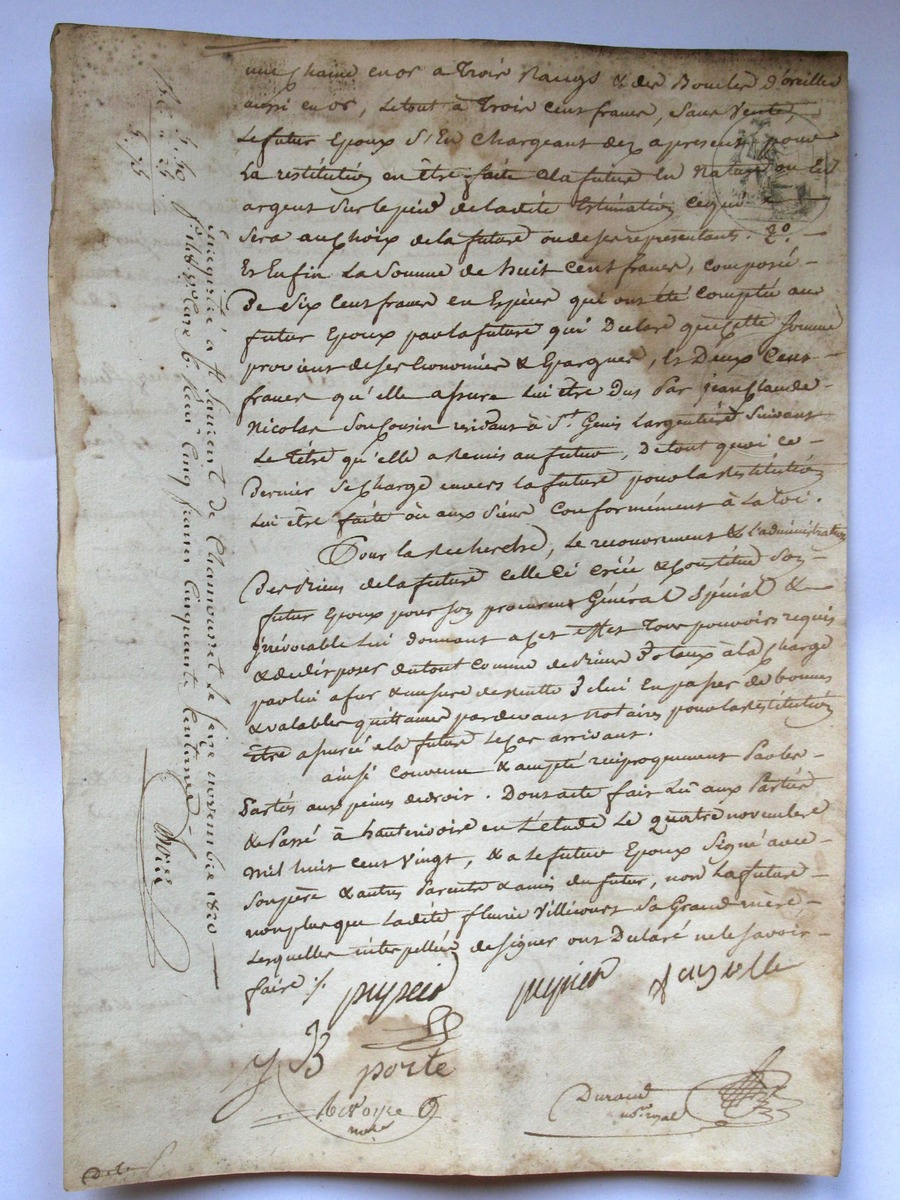 une chaine en or a trois Rangs & des Boucles d'oreilles
aussi en or, le tout à Trois cent francs, sans Vente,
le futur Epoux s'En chargeant dez apresent pour
la restitution en être faite a la future En Nature ou En
argent sur le pied de la ditte Estimation ce qui
sera au choix de la future ou de ses representants. 2º.
Et Enfin la Somme de huit cent francs, composé
De six cent francs en Espèces qui ont été comptés au
futur Epoux par la future qui Declare que cette somme
provient de ses Economies & Epargnes, & Deux Cent
francs qu'elle assure lui être Dus par jean Claude
Nicolas son Cousin residant à St. Genis Largentière suivant
Le têtre qu'elle a remis au futur, De tout quoi ce
Dernier se charge envers la future pour la restitution
lui être faite où aux siens conformément à la Loi.
Pour la recherche, le recouvrement & l'administration
Des Biens de la future celle Ci créée & Constitue son
futur Epoux pour son procureur Général Spécial &
jrrévocable lui donnant a cet effet tous pouvoirs requis
& de disposer du tout comme de Biens Dotaux à la Charge
par lui a fur & mesure de recette D'elui En passer de bonnes
& valables quittances pardevant notaires pour la restitution
être assurée a la future le cas arrivant.
ainsi convenu & accepté réciproquement Par les
Partés aux peines de droit. Dont acte fait Lû aux Partés
& Passé à hauterivoire en L'etude Le quatre novembre
mil huit cent Vingt, & a le futur Epoux signé avec
son père & autres Parents & amis du futur, non la future
non plus que la ditte fleurie Villecourt sa Grand mère
Lesquelles interpellées de signer ont Declaré ne le savoir
faire ./.
JB porte
Durand
nore royal
5. 50
5
Enregistré à St Laurent de Chamousset le seize novembre 1820
Reçu Cinq francs Cinquante Centimes